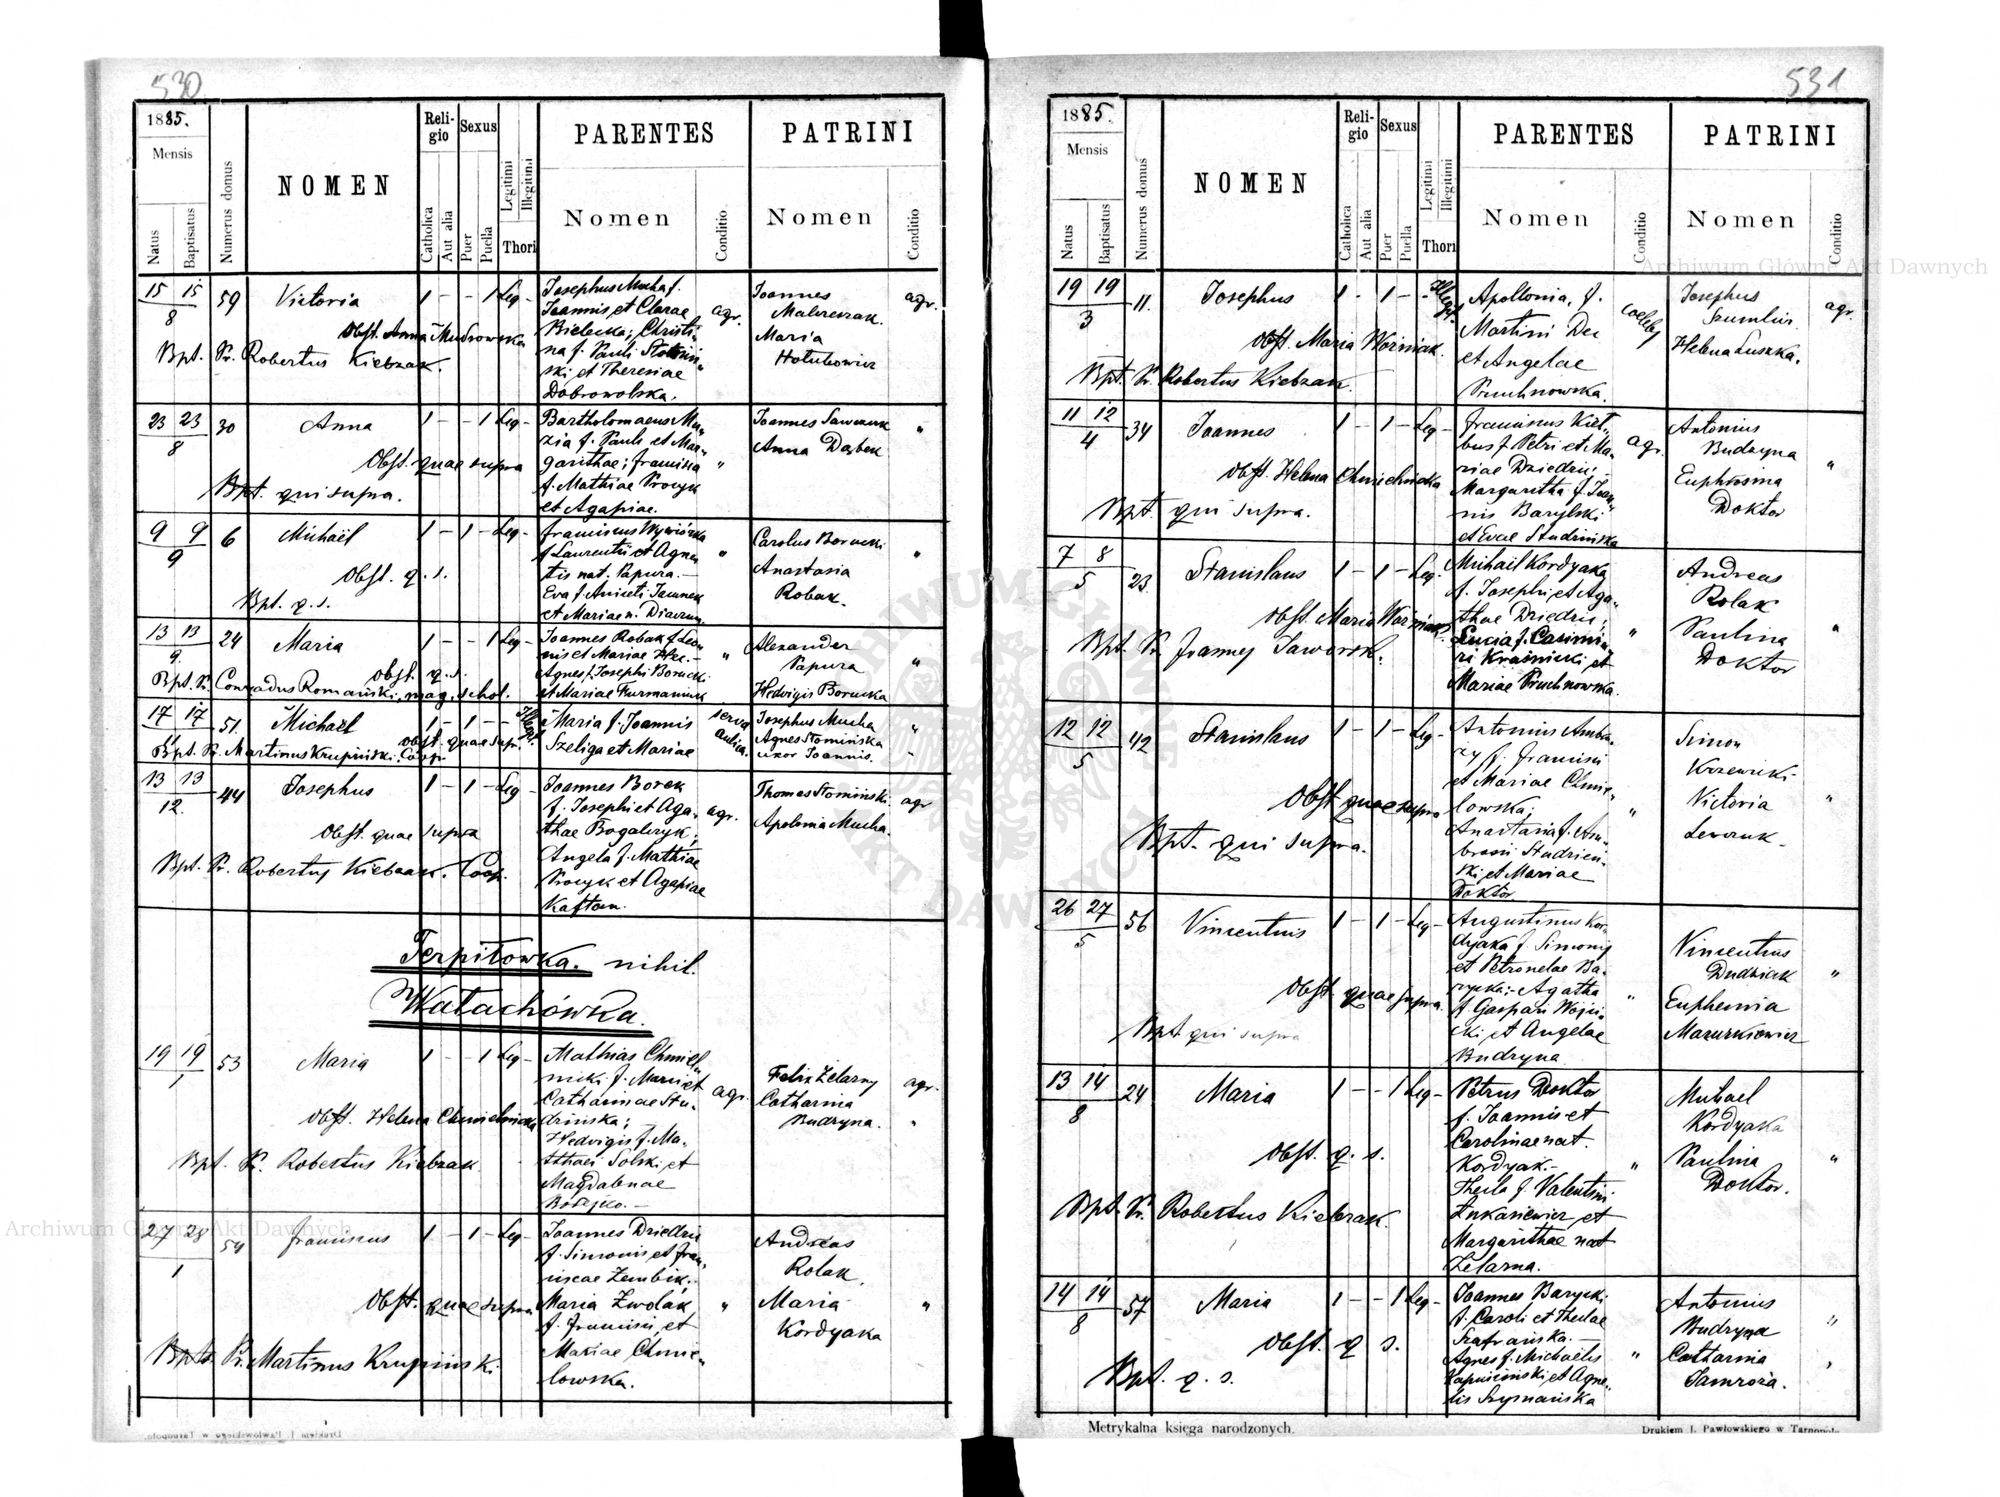 530
1885.
Mensis
Natus
Baptisatus
Numerus domus
NOMEN
Religio
Catholica
Aut alia
Sexus
Puer
Puella
Legitimi
Illegitimi
Thori
PARENTES
Nomen
Conditio
PATRINI
Nomen
Conditio
15 15 59 Victoria 1 - - 1 Leg - Josephus Mucha f. Joannes agr.
8 Joannis et Clarae agr. Malezczak
Obst. Anna Mudrowska Bielecka; Christi- Maria
Bpt. Pr. Robertus Kiebzak. na f. Pauli Hołubowicz
ski et Theresiae
Dobrowolska.
23 23 30 Anna 1 - - 1 Leg - Bartholomaeus Mu- Joannes "
8 zia f. Pauli et Mar- Anna
Obst. quae supra garithae; Francisca "
Bpt. qui supra. f. Mathiae Procyk
et Agapiae.
9 9 6 Michaël 1 - 1 - Leg - Franciscus Carolus Borucki "
9 f. Laurentii et Agne- " Anastasia
Obst. q. s. tis nat. Papura. - Robak.
Bpt. q. s. Eva f. Aniceti
et Mariae n.
13 13 24 Maria 1 - - 1 Leg - Joannes Robak f. Leo- Alexander
9 nis et Mariae " Papura "
Obst. q. s. Agnes f. Josephi Borucki
Bpt. Pr. Conradus Romański, mag. schol. et Mariae Furmaniuk Hedvigis Borucka
17 17 51 Michael 1 - 1 - Illegit. Maria f. Joannis serva Josephus Mucha "
Obst. quae supr. Szeliga et Mariae aulica. Agnes Słomińska
Bpt. Pr. Martinus Krupiński, Coop. uxor Joannis. "
13 13 44 Josephus 1 - 1 - Leg - Joannes Borek Thomas Słomiński agr
12. f. Josephi et Aga- agr.
Obst. quae supra thae Bogalczyk; Apolonia Mucha.
Bpt. Pr. Robertus Kiebzak. Coop. Angela f. Mathiae
Procyk et Agapiae
Kaftan.
Terpiłowka. nihil.
Wałachówka.
19 19 53 Maria 1 - - 1 Leg - Mathias Chmiel- Felix Żelazny agr.
1 nicki f. Marci et agr. Catharina
Catharinae Stu- Budryna. "
Obst. Helena Chmielnicka dzińska;
Hedvigis f. Ma-
Bpt. Pr. Robertus Kiebzak tthaei Solski et
Magdalenae
27 28 54 Franciscus 1 - 1 - Leg - Joannes Dziedzic Andreas
1 f. Simonis et Fran- Rolak.
ciscae Zembik.
Obst. quae supra Maria Zwolak " Maria "
f. Francisci et Kordyaka
Bpt. Pr. Martinus Krupiński. Mariae Chmie-
lowska.
531
1885.
Mensis
Natus
Baptisatus
Numerus domus
NOMEN
Religio
Catholica
Aut alia
Sexus
Puer
Puella
Legitimi
Illegitimi
Thori
PARENTES
Nomen
Conditio
PATRINI
Nomen
Conditio
19 19 11. Josephus 1 - 1 - Illegit. Apollonia, f. coelebs Josephus agr.
3 Martini Dec
Obst. Maria Woźniak. et Angelae Helena Luszka.
Bpt. Pr. Robertus Kiebzak. Pruchnowska.
11 12 34 Joannes 1 - 1 - Leg - Franciscus Kieł- Antonius
4 bus f. Petri et Ma- agr. Budryna "
Obst. Helena Chmielnicka riae Dziedzic; Euphrosina
Bpt. qui supra. Margaritha f. Joan- Doktor
nis Barylski
et Evae Studzińska
7 8 23. Stanislaus 1 - 1 - Leg - Michaël Kordyaka Andreas
5 f. Josephi et Aga- Rolak
Obst. Maria Woźniak. thae Dziedzic; " Paulina "
Bpt. Pr. Joannes Jaworsk. Lucia f. Casimi- Doktor
ri Kraśnicki et
Mariae Pruchnowska.
12 12 42 Stanislaus 1 - 1 - Leg - Antonius Ambro- Simon
5 zy f. Francisci Krzewicki
et Mariae Chmie- Victoria "
Obst. quae supra lowska; " Lewczuk.
Bpt. qui supra. Anastasia f. Am-
brosii Studzień-
ski et Mariae
Doktor.
26 27 56 Vincentius 1 - 1 - Leg - Augustinus Kor- Vincentius
5 dyaka f. Simonis Dudziak "
et Petronelae Ba-
Obst. quae supra. rycka; - Agatha " Euphemia
Bpt qui supra f. Gaspari Wójci- Mazurkiewicz
cki et Angelae
Budryna
13 14 24 Maria 1 - - 1 Leg - Petrus Doktor Michael
8 f. Joannis et Kordyaka
Carolinae nat.
Obst. q. s. Kordyak. - " Paulina "
Bpt. Pr. Robertus Kiebzak. Thecla f. Valentini Doktor.
Łukasiewicz et
Margarithae nat
Żelazna.
14 14 57 Maria 1 - - 1 Leg - Joannes Barycki Antonius
8 f. Caroli et Theclae Budryna "
Obst. q. s. Szafrańska. - Catharina
Bpt. q. s. Agnes f. Michaëlis " Jamroza. "
Kapuściński et Agne-
tis Szymańska
Metrykalna księga narodzonych.
Drukiem J. Pawłowskiego w Tarnopolu.
Archiwum Główne Akt Dawnych
Archiwum Główne Akt Dawnych
ARCHIWUM GŁÓWNE AKT DAWNYCH